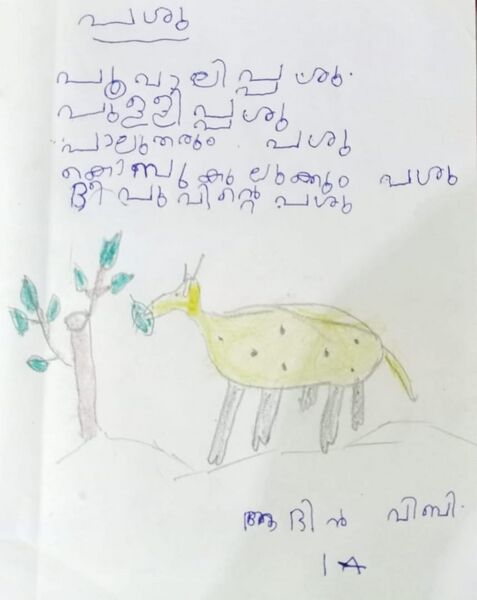 പശു
പൂവാലിപ്പശു.
പുള്ളിപ്പശു
പാലുതരും പശു
കൊമ്പുകുലുക്കും പശു
ദീപുവിന്റെ പശു
ആദിൻ വിബി.
1 A